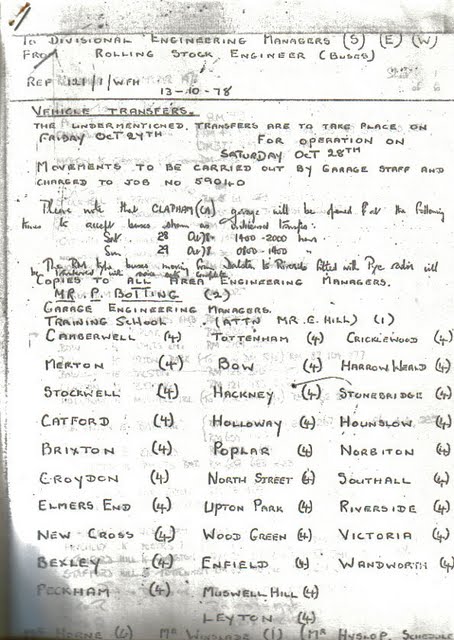 To Divisional Engineering Managers (S) (E) (W)
From Rolling Stock Engineer (Buses)
Ref 121/1/WFH
13-10-78
Vehicle Transfers.
The undermentioned transfers are to take place on
Friday Oct 27th For operation on
Saturday Oct 28th
Movements to be carried out by garage staff and
charged to Job No 59040
Please note that CLAPHAM (CA) garage will be opened at the following
times to accept buses shown as delivered transfers:
Sat 28 Oct 78 1400-2000 hrs
Sun 29 Oct 78 0800-1400 "
The type buses moving from to Riverside fitted with Pye radios will
be transferred with radio
Copies to all Area Engineering Managers.
Mr. P. Botting (2)
Garage Engineering Managers.
Training School. (Attn Mr. E. Hill) (1)
Camberwell (4) Tottenham (4) Cricklewood (4)
Merton (4) Bow (4) Harrow Weald (4)
Stockwell (4) Hackney (4) Stonebridge (4)
Catford (4) Holloway (4) Hounslow (4)
Brixton (4) Poplar (4) Norbiton (4)
Croydon (4) North Street (4) Southall (4)
Elmers End (4) Upton Park (4) Riverside (4)
New Cross (4) Wood Green (4) Victoria (4)
Bexley (4) Enfield (4) Wandworth (4)
Peckham (4) Muswell Hill (4)
Leyton (4)
Mr Horne (6) Mr Winslade (1) (Mr Hyslop. Schedule